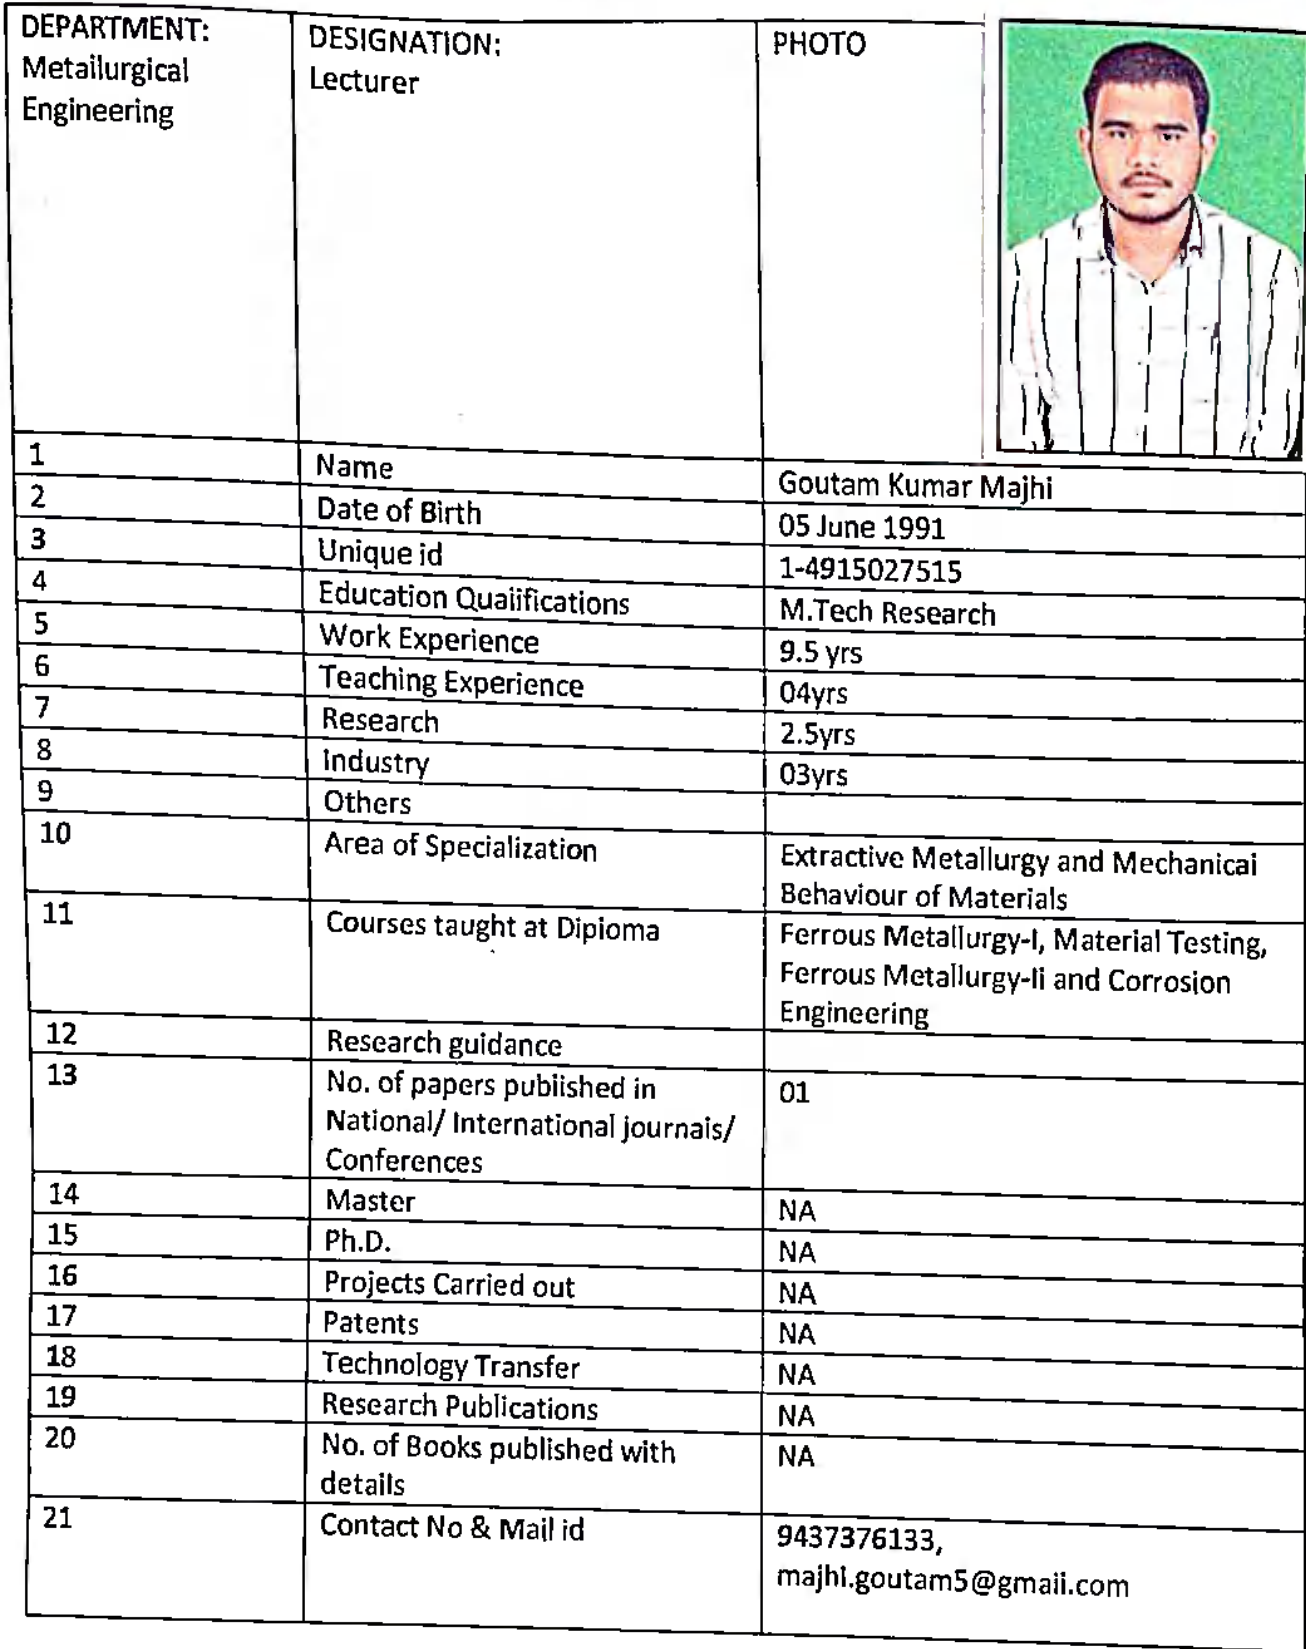 DEPARTMENT:
Metallurgical
Engineering
DESIGNATION:
Lecturer
PHOTO
1 Name Goutam Kumar Majhi
2 Date of Birth 05 June 1991
3 Unique id 1-4915027515
4 Education Qualifications M.Tech Research
5 Work Experience 9.5 yrs
6 Teaching Experience 04yrs
7 Research 2.5yrs
8 Industry 03yrs
9 Others
10 Area of Specialization Extractive Metallurgy and Mechanical
Behaviour of Materials
11 Courses taught at Diploma Ferrous Metallurgy-I, Material Testing,
Ferrous Metallurgy-Ii and Corrosion
Engineering
12 Research guidance
13 No. of papers published in 01
National/ International journals/
Conferences
14 Master NA
15 Ph.D. NA
16 Projects Carried out NA
17 Patents NA
18 Technology Transfer NA
19 Research Publications NA
20 No. of Books published with NA
details
21 Contact No & Mail id 9437376133,
majhi.goutam5@gmail.com